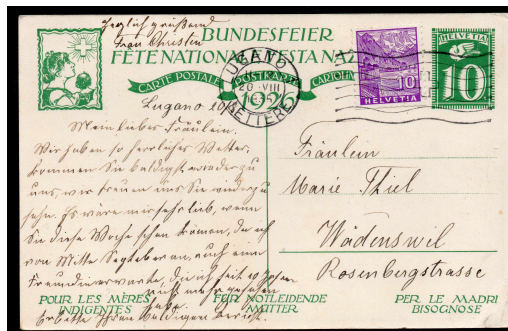 Herzlich grüßend
Frau Christen
BUNDESFEIER
FÊTE NATIONALE FESTA NAZ
CARTE POSTALE POSTKARTE CARTOLINA
1924
LUGANO
20. VIII
LETTERE
HELVETIA
10
10
HELVETIA
Lugano 20/8
Mein liebes Fräulein.
Wir haben so herrliches Wetter,
kommen Sie baldigst wieder zu
uns, wir freuen uns Sie wieder zu
sehn. Es wäre mir sehr lieb, wenn
Sie diese Woche schon kämen, da ich
von Mitte September an, auch eine
Freundin erwarte, die ich seit 10 Jahren
nicht mehr gesehen
habe.
Erbitte Ihren baldigen Bericht.
Fräulein
Marie Thiel
Wädenswil
Rosenbergstrasse
POUR LES MÈRES
INDIGENTES
FÜR NOTLEIDENDE
MÜTTER
PER LE MADRI
BISOGNOSE